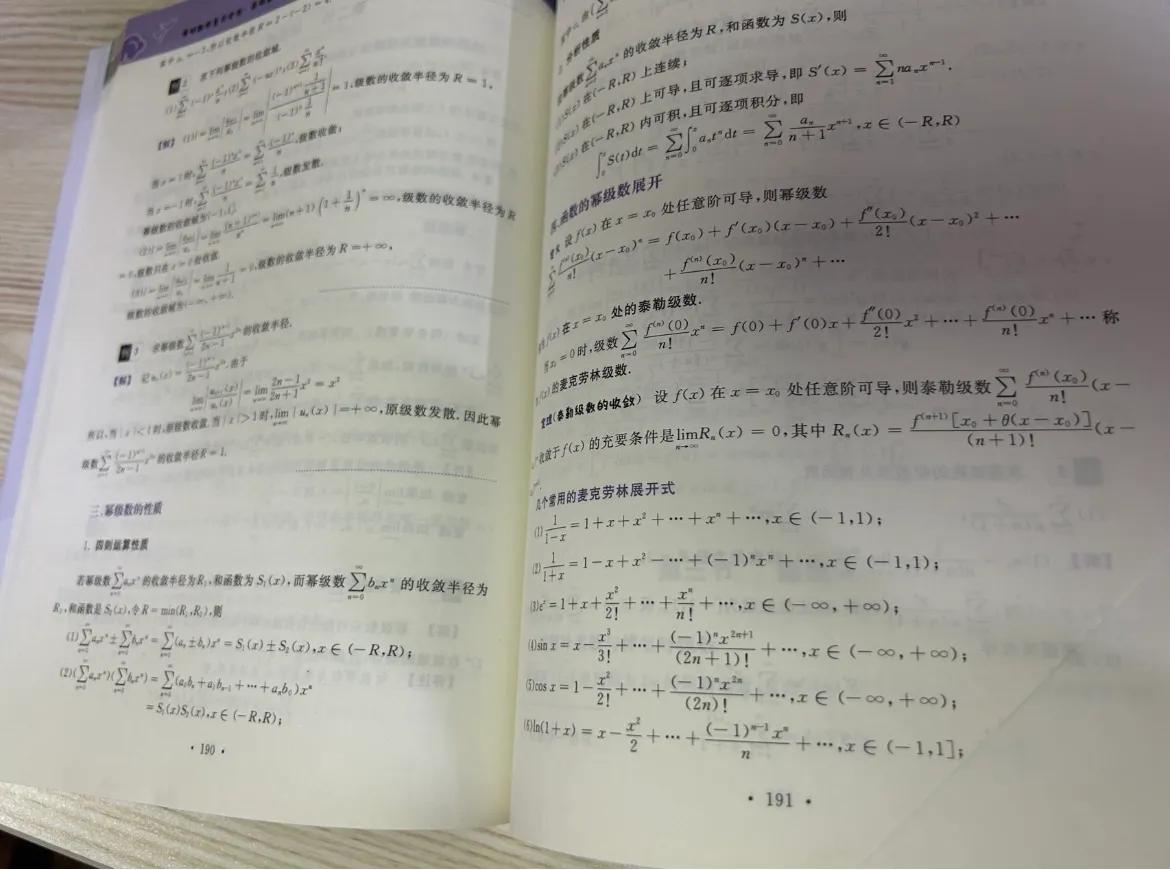 例 2 求下列幂级数的收敛域.
当 x = 1 时, \sum_{n=1}^{\infty} \frac{(-1)^n x^n}{n} = \sum_{n=1}^{\infty} \frac{(-1)^n}{n}, 级数收敛;
当 x = -1 时, \sum_{n=1}^{\infty} \frac{(-1)^n x^n}{n} = \sum_{n=1}^{\infty} \frac{1}{n}, 级数发散.
幂级数的收敛域为(-1,1].
= 0, 级数只在 x = 0 处收敛.
级数的收敛域为(-∞, +∞).
例 3 求幂级数 \sum_{n=1}^{\infty} \frac{(-1)^{n+1}}{2n-1} x^{2n} 的收敛半径.
【解】 记 u_n(x) = \frac{(-1)^{n+1}}{2n-1} x^{2n}, 由于
\lim_{n→∞} |\frac{u_{n+1}(x)}{u_n(x)}| = \lim_{n→∞} \frac{2n-1}{2n+1} x^2 = x^2
所以, 当 | x | < 1 时, 原级数收敛. 当 | x | > 1 时, \lim_{n→∞} | u_n(x) | = +∞, 原级数发散. 因此幂
级数 \sum_{n=1}^{\infty} \frac{(-1)^{n+1}}{2n-1} x^{2n} 的收敛半径 R = 1.
三、幂级数的性质
1. 四则运算性质
若幂级数 \sum_{n=0}^{\infty} a_n x^n 的收敛半径为 R_1, 和函数为 S_1(x), 而幂级数 \sum_{n=0}^{\infty} b_n x^n 的收敛半径为
R_2, 和函数是 S_2(x), 令 R = min(R_1, R_2), 则
(1) \sum_{n=0}^{\infty} a_n x^n ± \sum_{n=0}^{\infty} b_n x^n = \sum_{n=0}^{\infty} (a_n ± b_n) x^n = S_1(x) ± S_2(x), x ∈ (-R, R);
(2) (\sum_{n=0}^{\infty} a_n x^n)(\sum_{n=0}^{\infty} b_n x^n) = \sum_{n=0}^{\infty} (a_0 b_n + a_1 b_{n-1} + ⋯ + a_n b_0) x^n
= S_1(x) S_2(x), x ∈ (-R, R);
· 190 ·
分析性质
设幂级数 \sum_{n=0}^{\infty} a_n x^n 的收敛半径为 R, 和函数为 S(x), 则
(1) S(x) 在 (-R, R) 上连续;
(2) S(x) 在 (-R, R) 上可导, 且可逐项求导, 即 S'(x) = \sum_{n=1}^{\infty} n a_n x^{n-1}.
(3) S(x) 在 (-R, R) 内可积, 且可逐项积分, 即
\int_0^x S(t)dt = \sum_{n=0}^{\infty} \int_0^x a_n t^n dt = \sum_{n=0}^{\infty} \frac{a_n}{n+1} x^{n+1}, x ∈ (-R, R)
四、函数的幂级数展开
设 f(x) 在 x = x_0 处任意阶可导, 则幂级数
\sum_{n=0}^{\infty} \frac{f^{(n)}(x_0)}{n!} (x - x_0)^n = f(x_0) + f'(x_0)(x - x_0) + \frac{f''(x_0)}{2!} (x - x_0)^2 + ⋯
+ \frac{f^{(n)}(x_0)}{n!} (x - x_0)^n + ⋯
f(x) 在 x = x_0 处的泰勒级数.
当 x_0 = 0 时, 级数 \sum_{n=0}^{\infty} \frac{f^{(n)}(0)}{n!} x^n = f(0) + f'(0)x + \frac{f''(0)}{2!} x^2 + ⋯ + \frac{f^{(n)}(0)}{n!} x^n + ⋯ 称
f(x) 的麦克劳林级数.
定理(泰勒级数的收敛) 设 f(x) 在 x = x_0 处任意阶可导, 则泰勒级数 \sum_{n=0}^{\infty} \frac{f^{(n)}(x_0)}{n!} (x -
收敛于 f(x) 的充要条件是 \lim_{n→∞} R_n(x) = 0, 其中 R_n(x) = \frac{f^{(n+1)}[x_0 + θ(x - x_0)]}{(n+1)!} (x -
几个常用的麦克劳林展开式
(1) \frac{1}{1-x} = 1 + x + x^2 + ⋯ + x^n + ⋯, x ∈ (-1, 1);
(2) \frac{1}{1+x} = 1 - x + x^2 - ⋯ + (-1)^n x^n + ⋯, x ∈ (-1, 1);
(3) e^x = 1 + x + \frac{x^2}{2!} + ⋯ + \frac{x^n}{n!} + ⋯, x ∈ (-∞, +∞);
(4) sin x = x - \frac{x^3}{3!} + ⋯ + \frac{(-1)^n x^{2n+1}}{(2n+1)!} + ⋯, x ∈ (-∞, +∞);
(5) cos x = 1 - \frac{x^2}{2!} + ⋯ + \frac{(-1)^n x^{2n}}{(2n)!} + ⋯, x ∈ (-∞, +∞);
(6) ln(1 + x) = x - \frac{x^2}{2} + ⋯ + \frac{(-1)^{n-1} x^n}{n} + ⋯, x ∈ (-1, 1];
· 191 ·